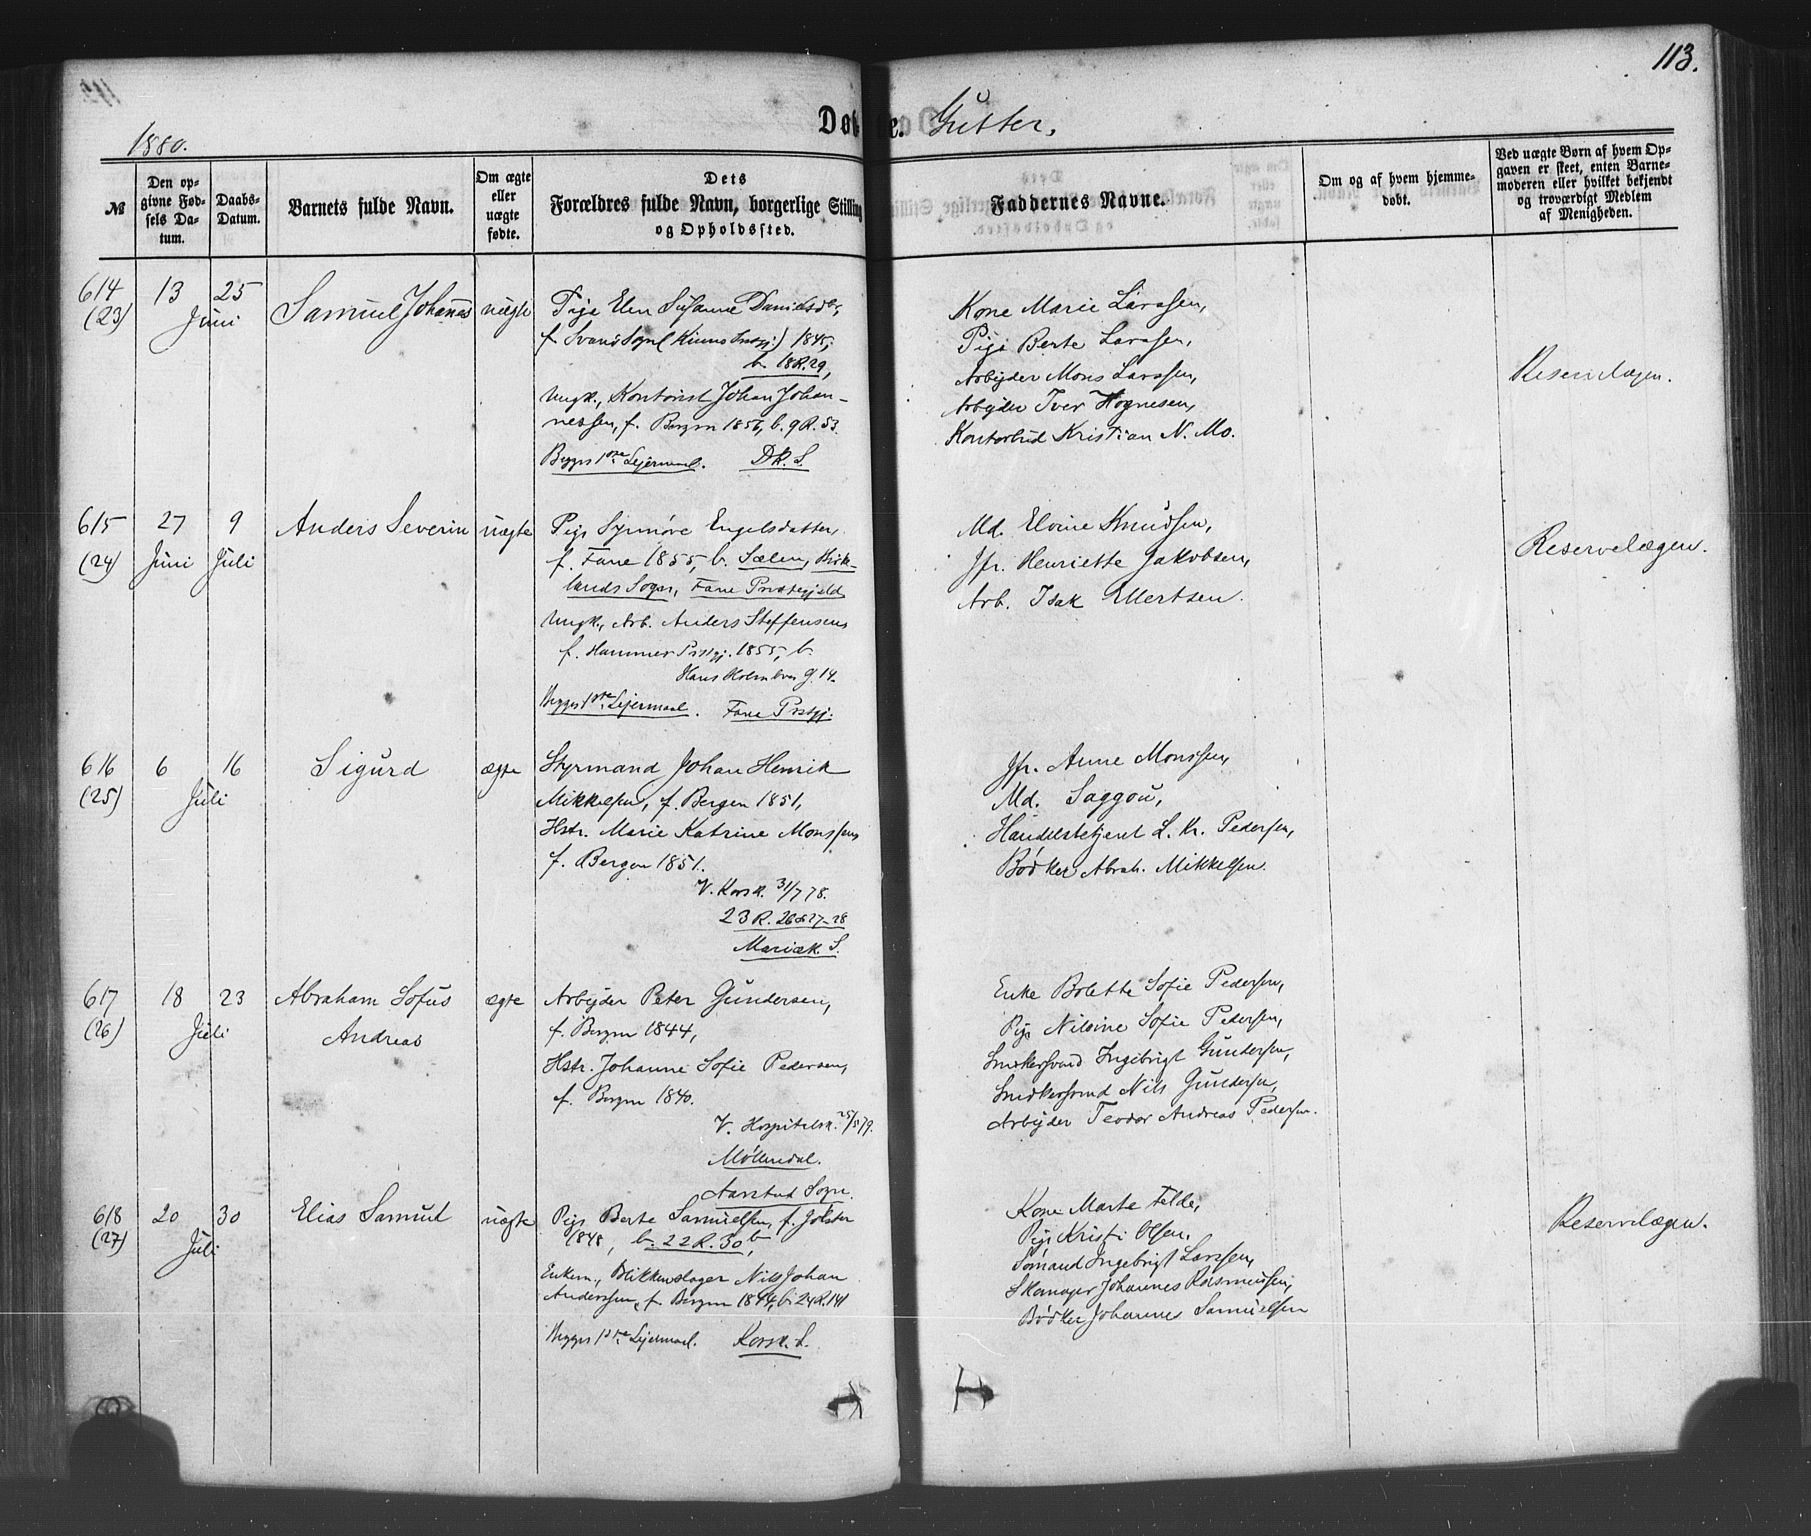 113.
Døbte. Gutter.
1880.
№
Den op-
givne Fød-
sels Da-
tum.
Daabs-
Datum.
Barnets fulde Navn.
Om ægte
eller
uægte
fødte.
Dets
Forældres fulde Navn, borgerlige Stilling
og Opholdssted.
Faddernes Navne.
Om og af hvem hjemme-
døbt.
Ved uægte Børn af hvem Op-
gaven er skeet, enten Barne-
moderen eller hvilket bekjendt
og troværdigt Medlem
af Menigheden.
614
(23)
13 25
Juni
Samuel Johannes
uægte
Pige Elen Susanne Danielsdr,
f. Svanø Sogn (Kinns Prstgj.) 1845,
b. 18 R. 29,
Ungk., Kontorist Johan Johan-
nessen, f. Bergen 1856, b. 9 R. 53.
Begges 1ste Lejermaal. DK. S.
Kone Marie Larssen,
Pige Berte Larssen,
Arbejder Mons Larssen,
Arbejder Iver Hognesen,
Kontorbud Kristian N. Mo.
Reservelægen.
615
(24)
27 9
Juni Juli
Anders Severin
uægte
Pige Synnøve Engelsdatter
f. Fane 1855, b. Sælen, Birke-
lands Sogn, Fane Præstegjeld
Ungk., Arb. Anders Steffensen,
f. Hammer Prstgj. 1855, b.
Hans Holmboes g. 14.
Begges 1ste Lejermaal. Fane Prstgj.
Md. Elvine Knudsen,
Jfr. Henriette Jakobsen,
Arb. Isak Ellertsen.
Reservelægen.
616
(25)
6 16
Juli
Sigurd
ægte
Styrmand Johan Henrik
Mikkelsen, f. Bergen 1851,
Hstr. Marie Katrine Monssen
f. Bergen 1851.
V. Korsk. 31/7 78.
23 R. 26 & 27-28
Mariæk S.
Jfr. Anne Monssen,
Md. Saggou,
Handelsbetjent L. Kr. Pedersen,
Bødker Abrah. Mikkelsen.
617
(26)
18 23
Juli
Abraham Sofus
Andreas
ægte
Arbejder Peter Gundersen,
f. Bergen 1844,
Hstr. Johanne Sofie Pedersen,
f. Bergen 1840.
V. Hospitalsk. 25/5 79.
Møllendal.
Aarstad Sogn.
Enke Bolette Sofie Pedersen,
Pige Nilsine Sofie Pedersen,
Snedkersvend Ingebrigt Gundersen,
Snedkersvend Nils Gundersen,
Arbejder Teodor Andreas Pedersen.
618
(27)
20 30
Juli
Elias Samuel
uægte
Pige Berte Samuelsen, f. Jølster
1848, b. 22 R. 30 b,
Enkem., Blikkenslager Nils Johan
Anderssen, f. Bergen 1844, b. 24 R. 141
Begges 1ste Lejermaal. Korsk. S.
Kone Marte Felde,
Pige Kristi Olsen,
Sømand Ingebrigt Larssen,
Skomager Johannes Rasmussen,
Bødker Johannes Samuelsen
Reservelægen.